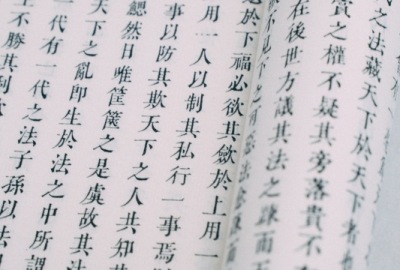 之法藏天下於天下者
賞之權不疑其旁落貴不
在後世方議其法之疎而
不見下之可惡法愈疎而
於下福必欲其斂於上用一
用一人以制其私行一事焉
事以防其欺天下之人共知其
鰓然日唯筐篋之是虞故其法
天下之亂即生於法之中所謂
一代有一代之法子孫以法
不勝其利欲